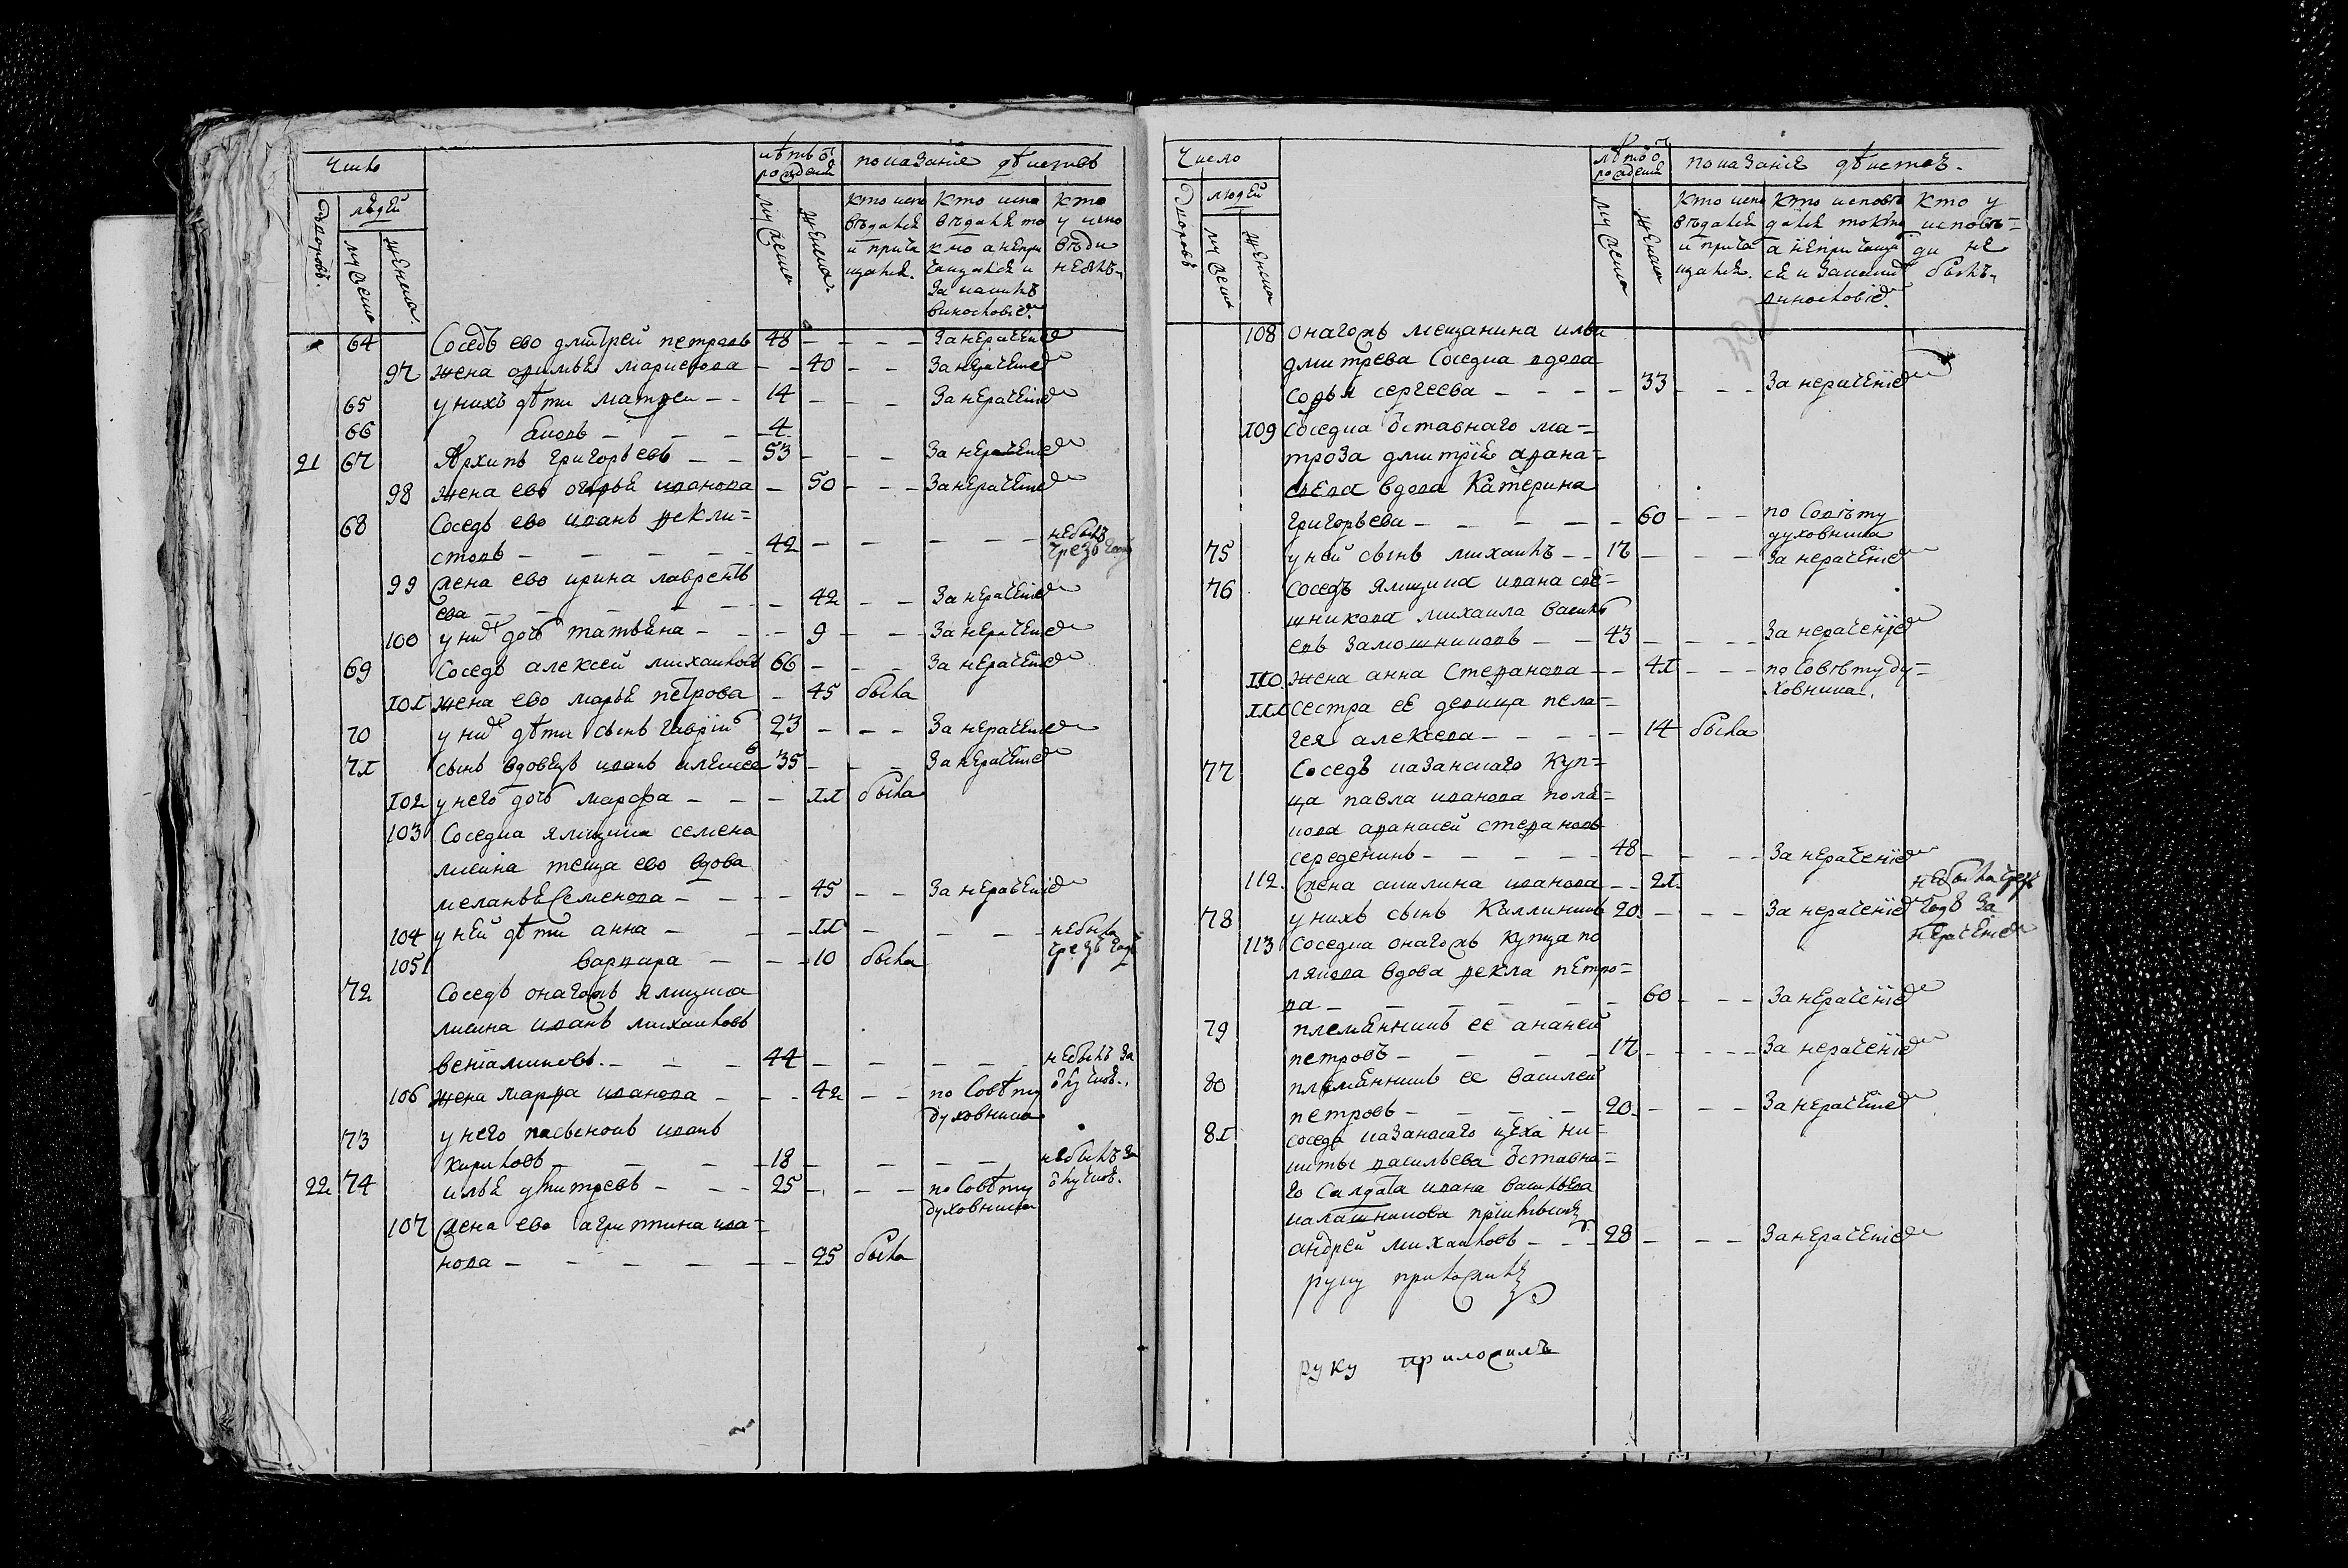 Число
лѣтъ ѿ рожденiя
показанiе дѣиствъ
дворовъ.
людей
мужеска
женска.
мужеска
женска.
кто испо вѣдался и прича щался.
кто испо вѣдался то кмо а непри чащался и за какимъ винословiем.
кто у испо вѣди небылъ.
64 Соседъ ево дмитрей петровъ 48 - - - - За нерачением
97 жена ѳимья марис - - 40 - - За нерачением
65 у нихъ дѣти матвеи - - 14 - - - За нерачением
66 - - - 4
21 67 Архипъ григорьевъ - - 53 - - - За нерачением
98 жена ево иванова - 50 - - - За нерачением
68 Соседъ ево иванъ ѳекли=
стовъ - - - - - 42 - - - - - небылъ чрезъ годъ
99 жена ево ирина лаврентъ
ева - - - - - - 42 - - За нерачением
100 у них дочь татьяна - - - 9 - - - За нерачением
69 Соседъ алексеи михаиловъ 66 - - - За нерачением
101 жена ево марья петрова - 45 была
70 у них дѣти сынъ гаврiилъ 23 - - - За нерачением
71 сынъ вдовецъ иванъ алексеевъ 35 - - - За нерачением
102 у него дочь марѳа - - - 11 была
103 Соседка ямщика семена
лисина теща ево вдова
меланья Семенова - - - - 45 - - За нерачением
104 у ней дѣти анна - - - 11 - - - - небыла чрезъ годъ
105 варвара - - - 10 была
72 Соседъ онагожъ ямщика
лисина иванъ михаиловъ
венiаминовъ. - - - 44 - - - - - небылъ за ѿлучков.
106 жена марѳа иванова - - - 42 - - по совѣту духовника
73 у него пасынокъ иванъ
кириловъ - - - - 18 - - - - небылъ за ѿлучков.
22 74 илья дмитревъ - - - 25 - - - по совѣту духовника
107 жена ево агриппина ива=
нова - - - - - - - 25 была
Число
лѣтъ ѿ рожденiя
показанiе дѣиствъ.
дворовъ
людей
мужеска
женска
мужеска
женска
кто испо вѣдался и прича щался.
кто исповѣ дался токмо а непричащал ся и за каким винословiем.
кто у исповѣ= ди не былъ.
108 онагожъ мещанина ильи
дмитрева Соседка вдова
соѳья сергеева - - - - 33 - - - За нерачением
109 соседка ѿставнаго ма=
троза дмитрiя аѳана=
сьева вдова Катерина
григорьева - - - - - 60 - - - по совѣту духовника
75 у ней сынъ михаилъ - - 17 - - - За нерачением
76 соседъ ямщика ивана
шникова михаила василь
евъ замошниковъ - - 43 - - - - За нерачением
110. жена анна Стеѳанова - - 41 - - - по совѣту ду=
ховника.
111 сестра ее девица пела=
гея алексева - - - - - 14 была
77 Соседъ казанскаго куп=
ца павла иванова поля=
кова аѳанасей стеѳановъ
середенинъ - - - - - 48 - - - - За нерачением
112. жена акилина иванова - - 21 небыла чрезъ годъ за нерачением
78 у нихъ сынъ Каллиникъ 20 - - - - За нерачением
113 соседка онагожъ купца по
лякова вдова ѳекла петро=
ва - - - - - - 60 - - - За нерачением
79 племянникъ ее ананей
петровъ - - - - - 17 - - - - За нерачением
80 племянникъ ее василей
петровъ - - - - - 20 - - - - За нерачением
81 соседъ казанскаго цеха ни=
киты васильева ѿставна=
го салдата ивана васильева
калашникова
андрей михаиловъ - - - 28 - - - За нерачением
руку приложилъ
руку приложилъ